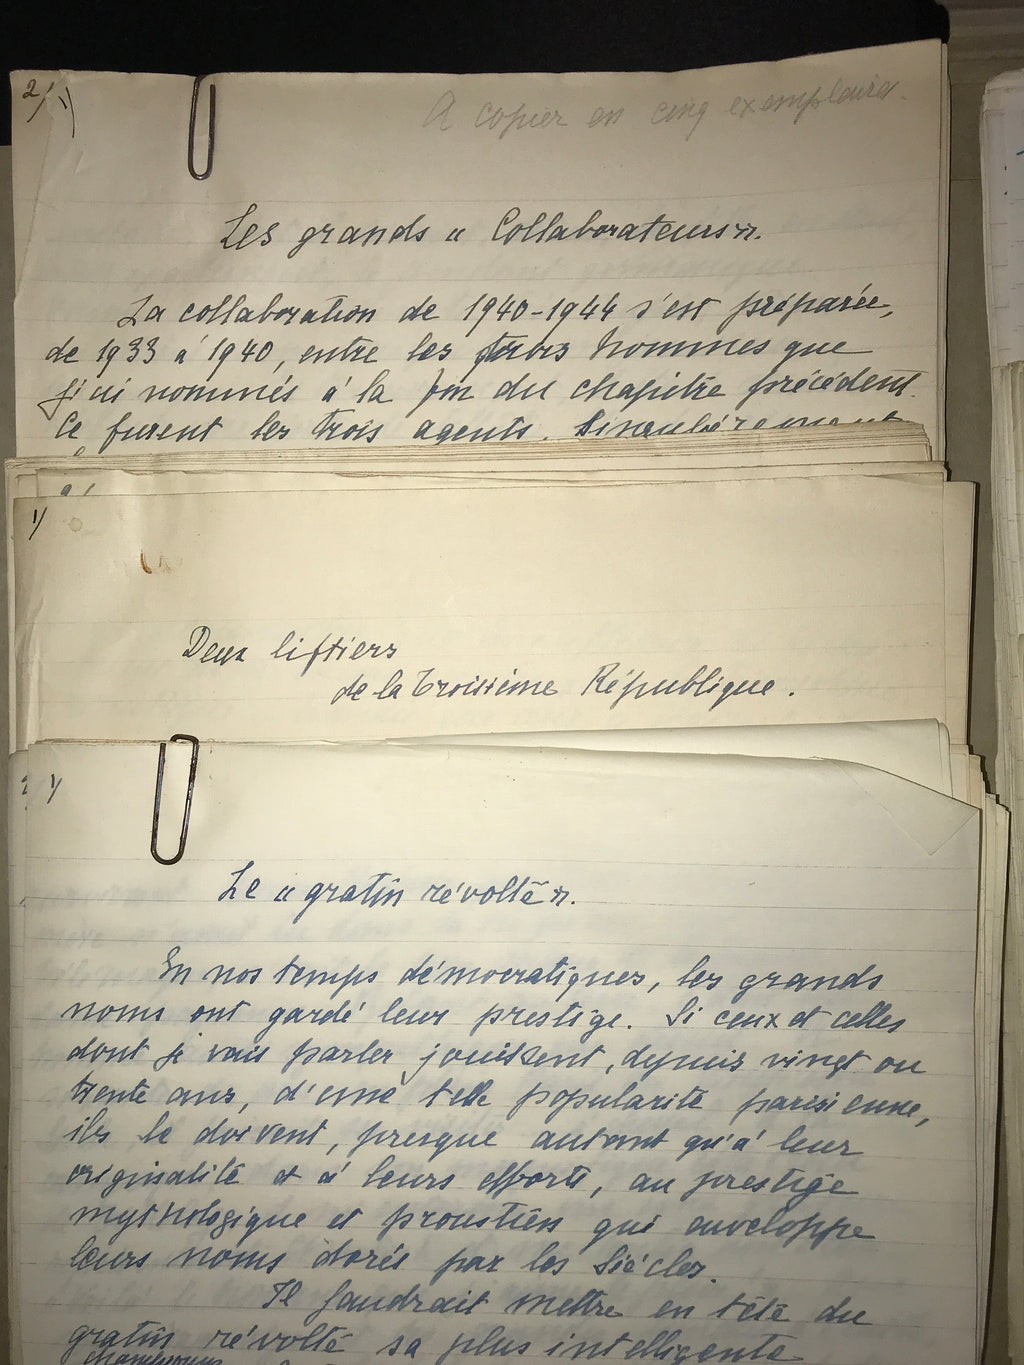 2/ 1)
A copier en cinq exemplaires.
Les grands « Collaborateurs ».
La collaboration de 1940-1944 s'est préparée,
de 1933 à 1940, entre les trois hommes que
j'ai nommés à la fin du chapitre précédent.
Ce furent les trois agents. Singulièrement
1/
Deux liftiers
de la Troisième République.
1/
Le « gratin révolté ».
En nos temps démocratiques, les grands
noms ont gardé leur prestige. Si ceux et celles
dont je vais parler jouissent, depuis vingt ou
trente ans, d'une telle popularité parisienne,
ils le doivent, presque autant qu'à leur
originalité et à leurs efforts, au prestige
mythologique et proustien qui enveloppe
leurs noms dorés par les siècles.
Il faudrait mettre en tête du
gratin révolté sa plus intelligente